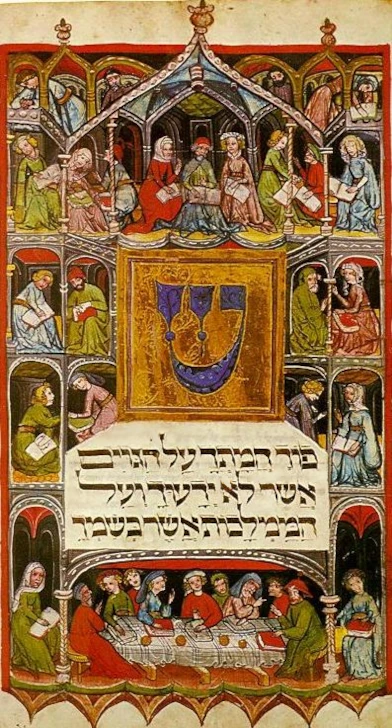 ש
פוך חמתך על הגויים
אשר לא ידעוך ועל
הממלכות אשר בשמך